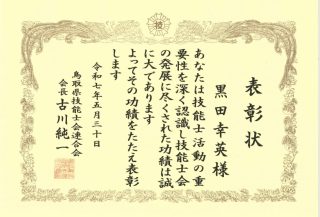 技
表彰状
黒田幸英様
あなたは技能士活動の重
要性を深く認識し技能士会
の発展に尽くされた功績は誠
に大であります
よってその功績をたたえ表彰
します
令和七年五月三十日
鳥取県技能士会連合会
会長 古川純一